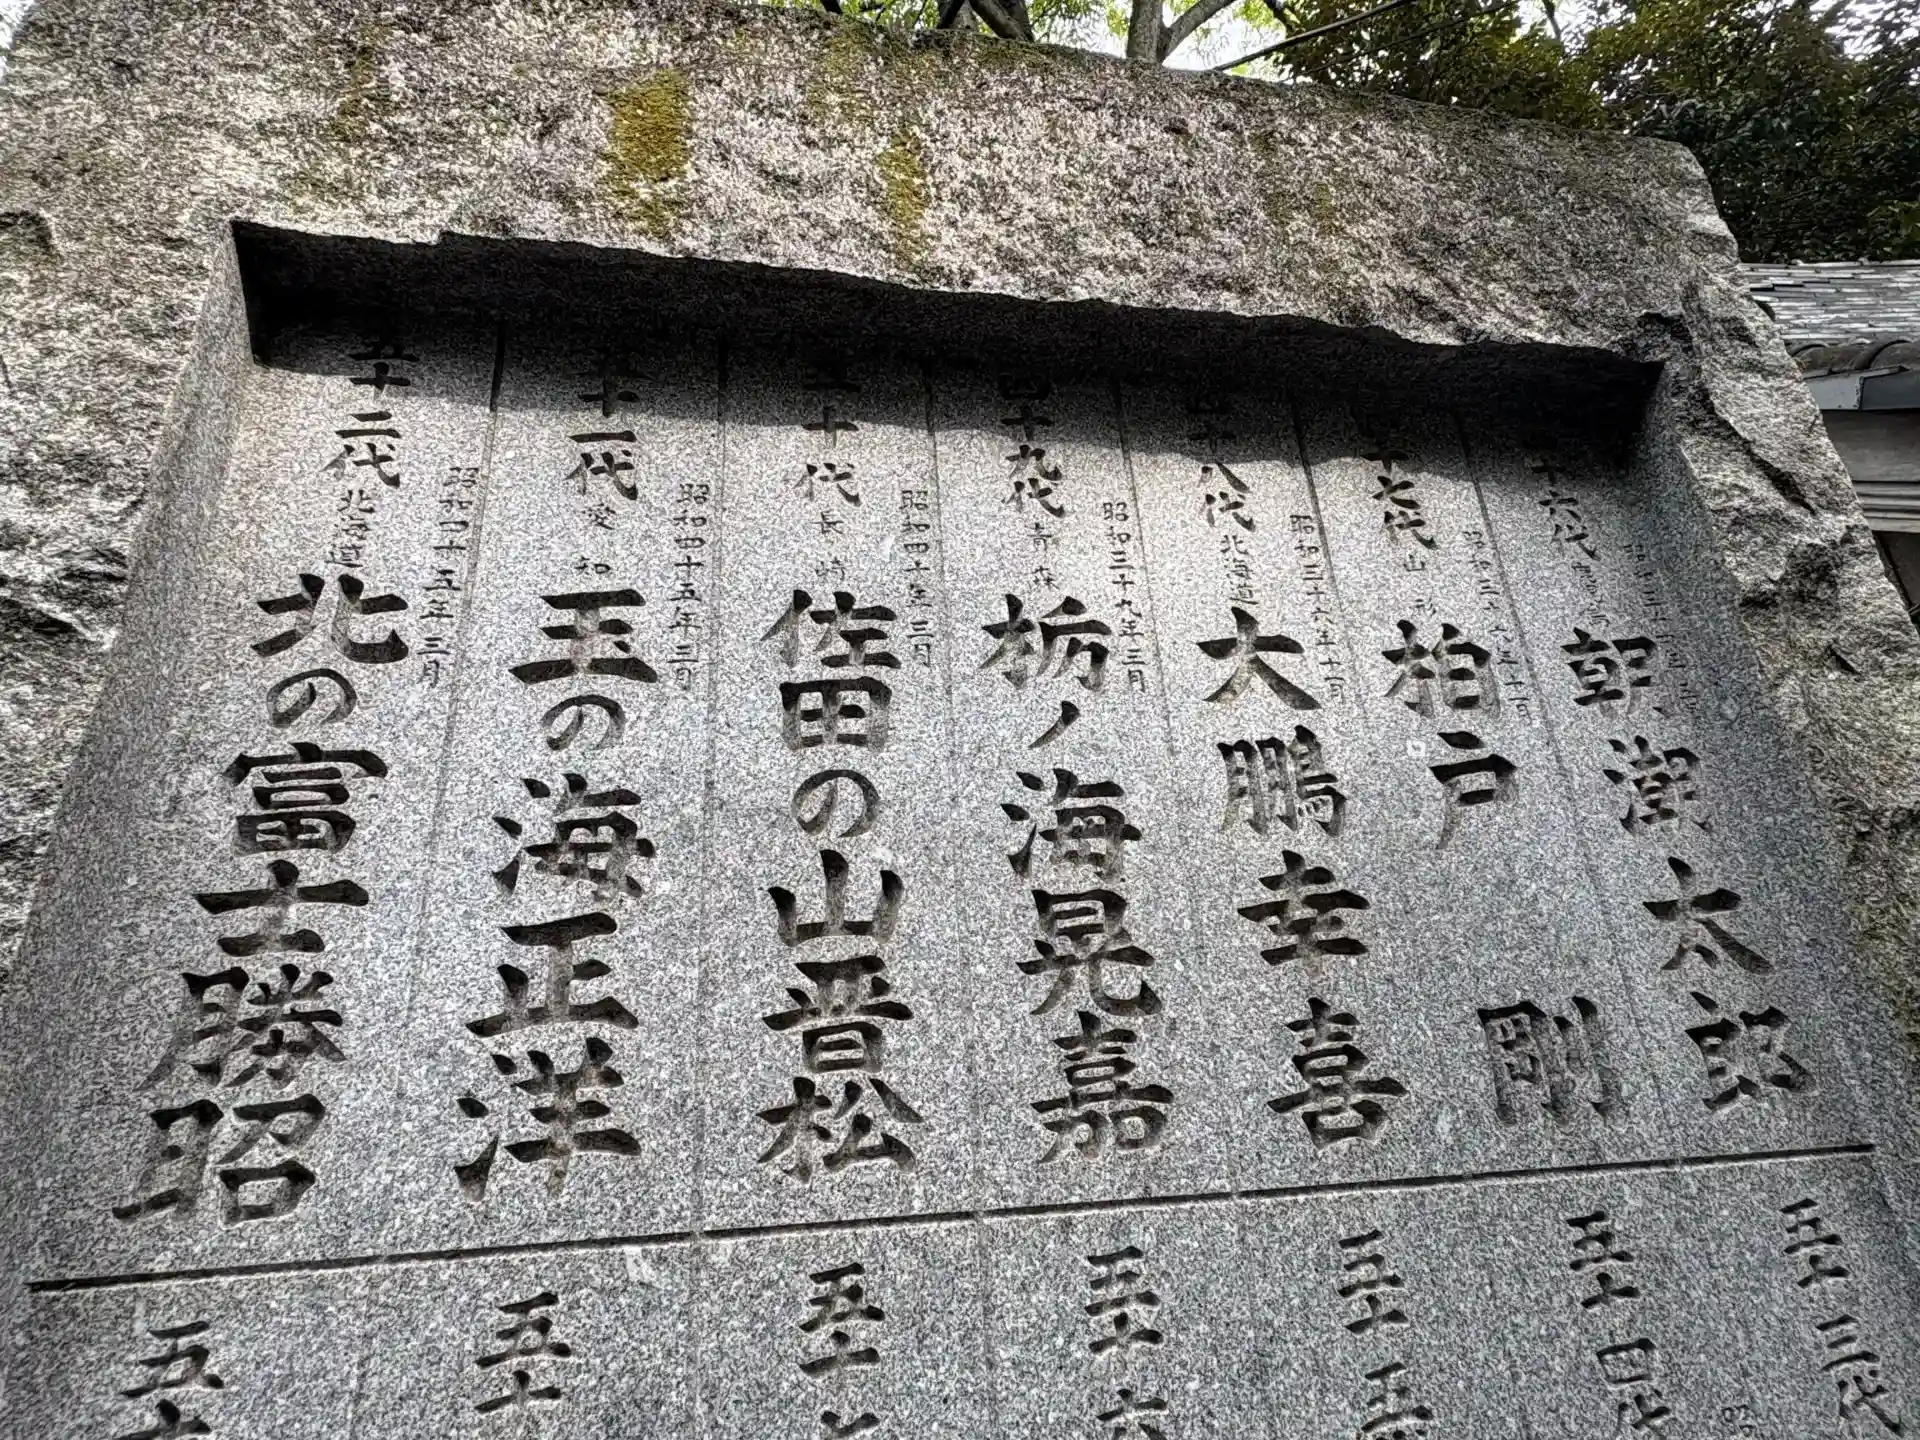 十六代
朝潮太郎
十七代 山形
柏戸 剛
昭和三十六年十一月
四十八代 北海道
大鵬幸喜
昭和三十九年三月
四十九代 青森
栃ノ海晃嘉
昭和四十年三月
五十代 長崎
佐田の山晋松
昭和四十五年三月
五十一代 愛知
玉の海正洋
昭和四十五年三月
五十二代 北海道
北の富士勝昭
五十三代
五十四代
五十五
五十六
五十七
五十
五十